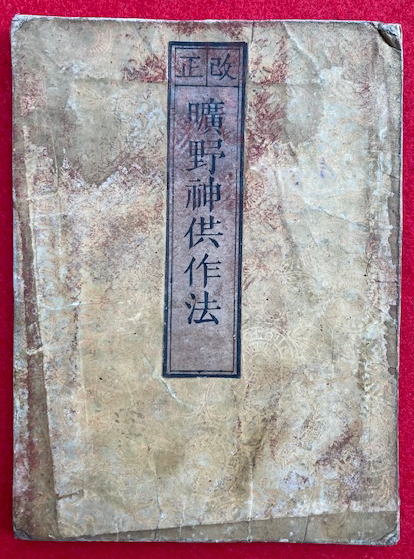 改正
曠野神供作法